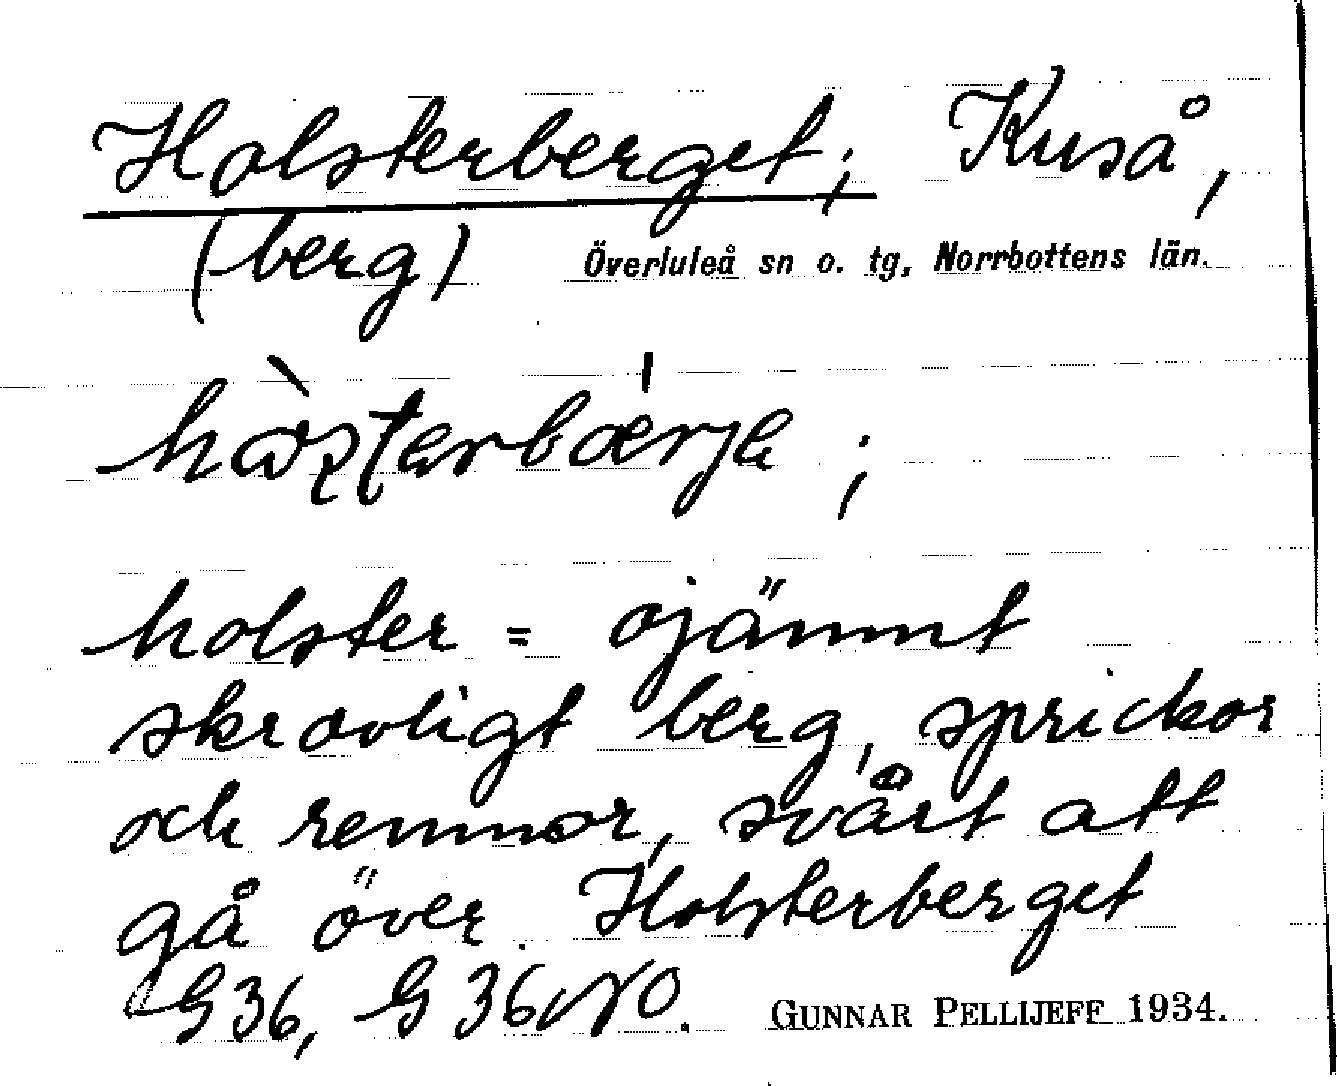 Holsterberget; Kuså,
(berg) Överluleå sn o. tg, Norrbottens län.
holster = ojämnt
skrovligt berg, sprickor
och remnor, svårt att
gå över. Holsterberget
G 36, G 36 NO. GUNNAR PELLIJEFF 1934.